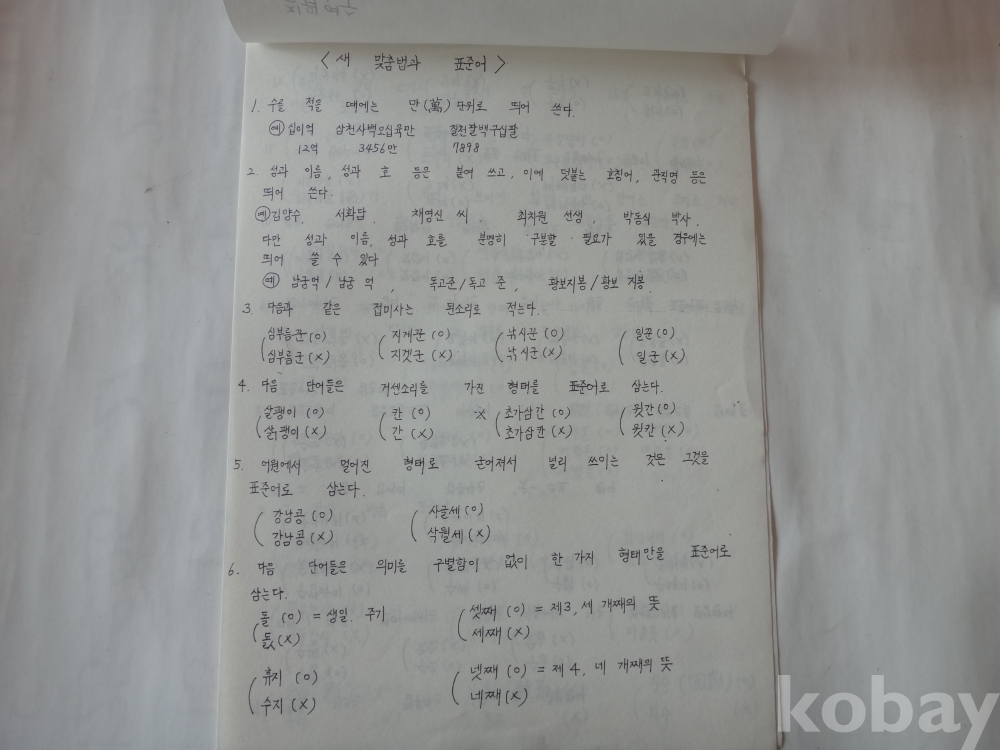 < 새 맞춤법과 표준어 >
1. 수를 적을 때에는 만(萬) 단위로 띄어 쓴다.
예 십이억 삼천사백오십육만 칠천팔백구십팔
12억 3456만 7898
2. 성과 이름, 성과 호 등은 붙여 쓰고, 이에 덧붙는 호칭어, 관직명 등은
띄어 쓴다.
예 김양수, 서화담, 채영신 씨, 최치원 선생, 박동식 박사.
다만 성과 이름, 성과 호를 분명히 구분할 필요가 있을 경우에는
띄어 쓸 수 있다
예 남궁억 / 남궁 억, 독고준 / 독고 준, 황보지봉 / 황보 지봉.
3. 다음과 같은 접미사는 된소리로 적는다.
심부름꾼 (O) 지게꾼 (O) 낚시꾼 (O) 일꾼 (O)
심부름군 (X) 지겟군 (X) 낚시군 (X) 일군 (X)
4. 다음 단어들은 거센소리를 가진 형태를 표준어로 삼는다.
살쾡이 (O) 칸 (O) X 초가삼간 (O) 윗간 (O)
(X) 간 (X) 초가삼칸 (X) 윗칸 (X)
5. 어원에서 멀어진 형태로 굳어져서 널리 쓰이는 것은 그것을
표준어로 삼는다.
강낭콩 (O) 사글세 (O)
강남콩 (X) 삭월세 (X)
6. 다음 단어들은 의미를 구별함이 없이 한 가지 형태만을 표준어로
삼는다.
돌 (O) = 생일. 주기 셋째 (O) = 제3, 세 개째의 뜻
돐 (X) 세째 (X)
휴지 (O) 넷째 (O) = 제4, 네 개째의 뜻
수지 (X) 네째 (X)
kobay